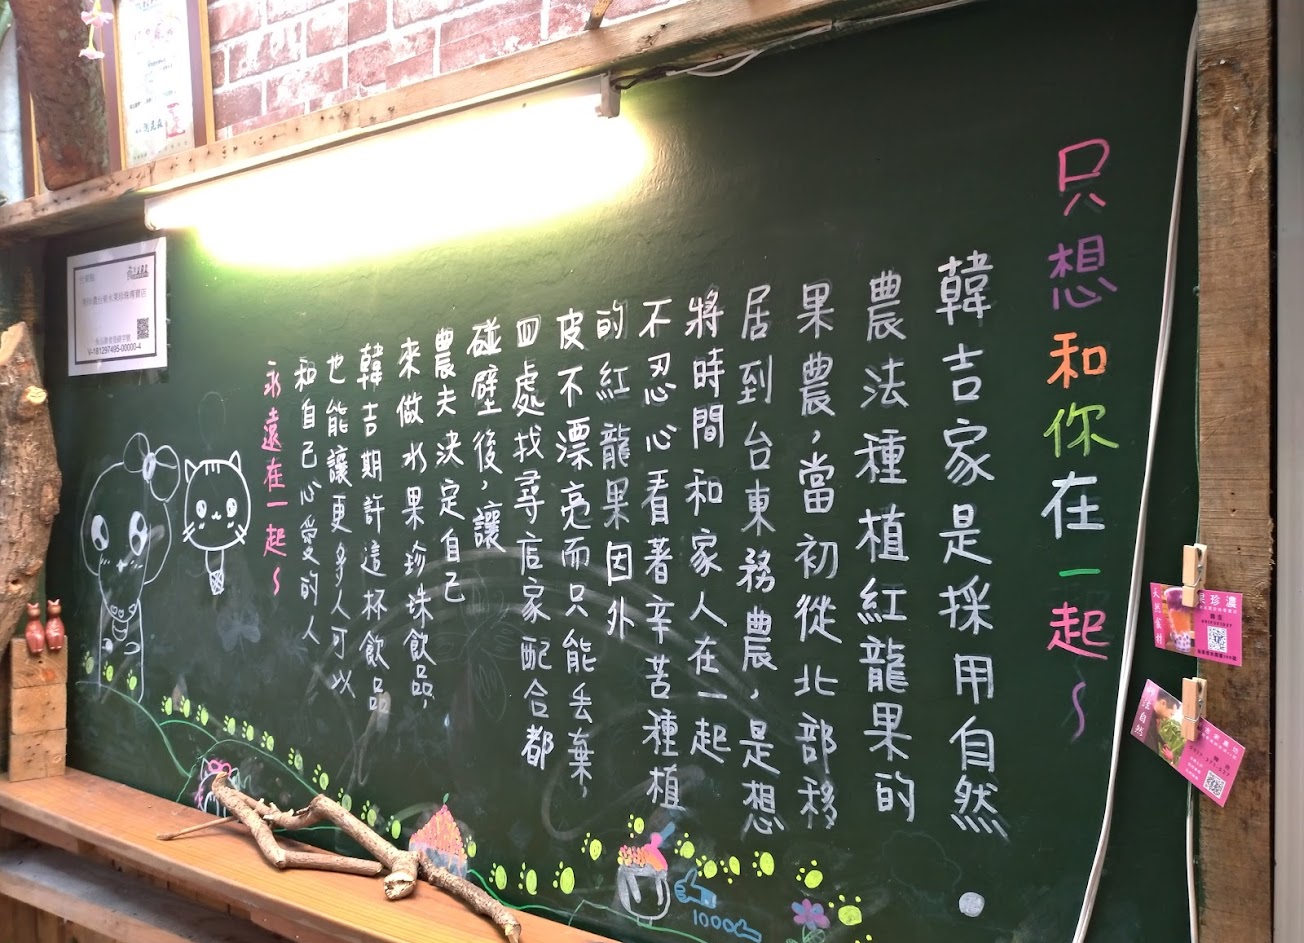 只想和你在一起～
韓吉家是採用自然
農法種植紅龍果的
果農，當初從北部移
居到台東務農，是想
將時間和家人在一起
不忍心看著辛苦種植
的紅龍果因外
皮不漂亮而只能丟棄，
四處找尋店家配合都
碰壁後，讓
農夫決定自己
來做水果珍珠飲品，
韓吉期許這杯飲品
也能讓更多人可以
和自己心愛的人
永遠在一起～
1000
V-181297495-00000-4
天然食材